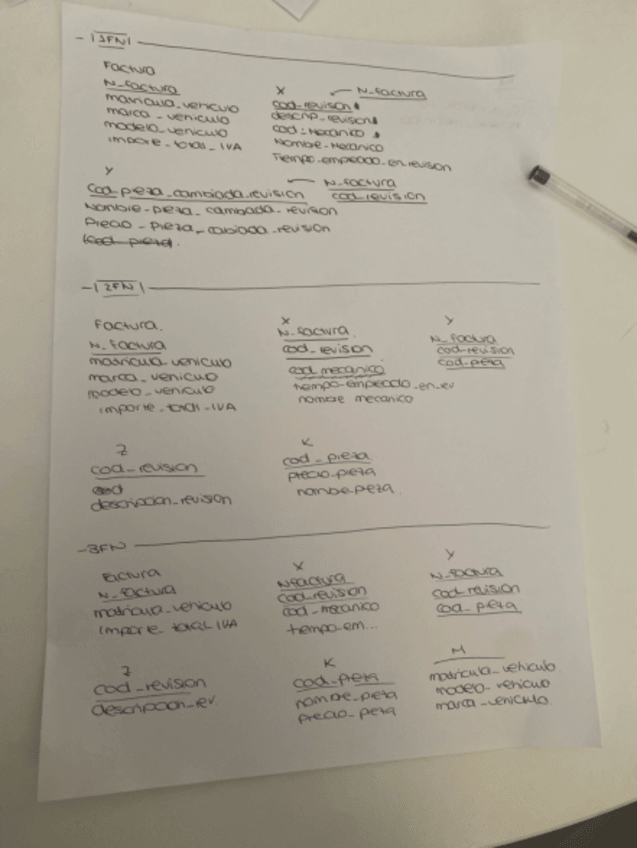 - |1FN|
Factura
N_factura
matricula_vehiculo
marca_vehiculo
modelo_vehiculo
importe_total_IVA
X
N_factura
cod_revison
descrip_revision
cod_Mecánico
Nombre_Mecánico
Tiempo_empeado_en_revisión
Y
N_factura
cod_pieza_cambiada_revisión
cod_revision
Nombre_pieza_cambiada_revisión
Precio_pieza_cabiada_revisión
-|2FN|
Factura.
N_factura
matricula_vehiculo
marca_vehiculo
modelo_vehiculo
importe_total_IVA
X
N_factura
cod_revision
cod_mecanico
tiempo_empeado_en_ev
nombre mecanico
Y
N_factura
cod_revision
cod_pieza
Z
cod_revision
descripcion_revision
K
cod_pieza
precio_pieza
nombe_pieza
-3FN
Factura
N_factura
matricula_vehiculo
importe_total_IVA
X
Nfactura
cod_revision
cod_mecanico
tiempo_em...
Y
N_factura
cod_revision
cod_pieza
Z
cod_revision
descripcion_ev.
K
cod_pieza
nombe_pieza
precio_pieza
M
matricula_vehiculo
modelo_vehiculo
marca_vehiculo